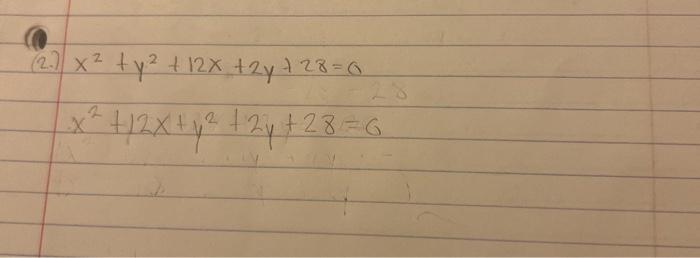 (2.) x² + y² + 12x + 2y + 28 = 0
- 28
x² + 12x + y² + 2y + 28 = 0